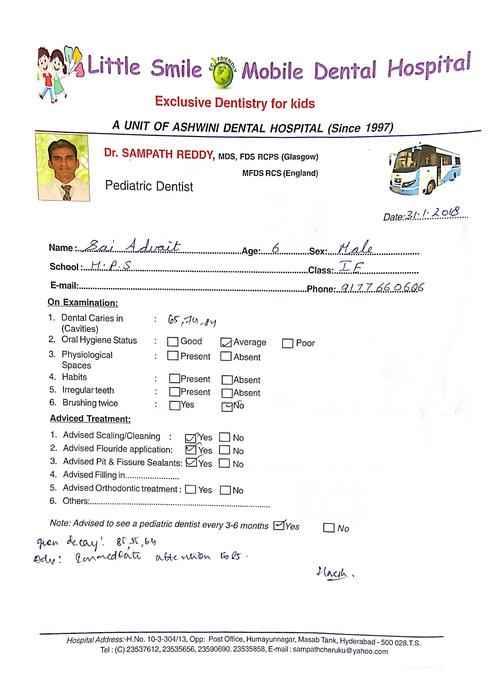 Little Smile Mobile Dental Hospital
ECO FRIENDLY
Exclusive Dentistry for kids
A UNIT OF ASHWINI DENTAL HOSPITAL (Since 1997)
Dr. SAMPATH REDDY, MDS, FDS RCPS (Glasgow)
MFDS RCS (England)
Pediatric Dentist
Date: 31.1.2018
Name: Sai Advait Age: 6 Sex: Male
School: H.P.S Class: I F
E-mail: Phone: 9177660606
On Examination:
1. Dental Caries in : 65,74,84
(Cavities)
2. Oral Hygiene Status : Good Average Poor
3. Physiological : Present Absent
Spaces
4. Habits : Present Absent
5. Irregular teeth : Present Absent
6. Brushing twice : Yes No
Adviced Treatment:
1. Advised Scaling/Cleaning : Yes No
2. Advised Flouride application: Yes No
3. Advised Pit & Fissure Sealants: Yes No
4. Advised Filling in
5. Advised Orthodontic treatment : Yes No
6. Others:
Note: Advised to see a pediatric dentist every 3-6 months Yes No
open decay: 85,55,64
Adv: Immediate attention to 85.
Hospital Address:-H.No. 10-3-304/13, Opp: Post Office, Humayunnagar, Masab Tank, Hyderabad - 500 028.T.S.
Tel : (C) 23537612, 23535656, 23590690, 23535858, E-mail : sampathcheruku@yahoo.com